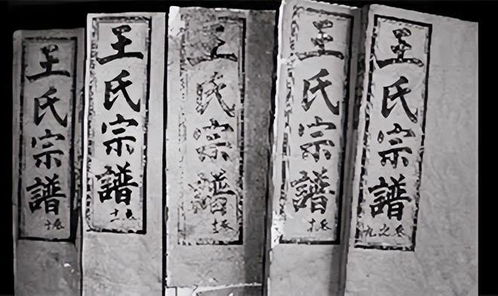 王氏宗譜
卷之九
王氏宗譜
王氏宗譜
王氏宗譜
王氏宗譜